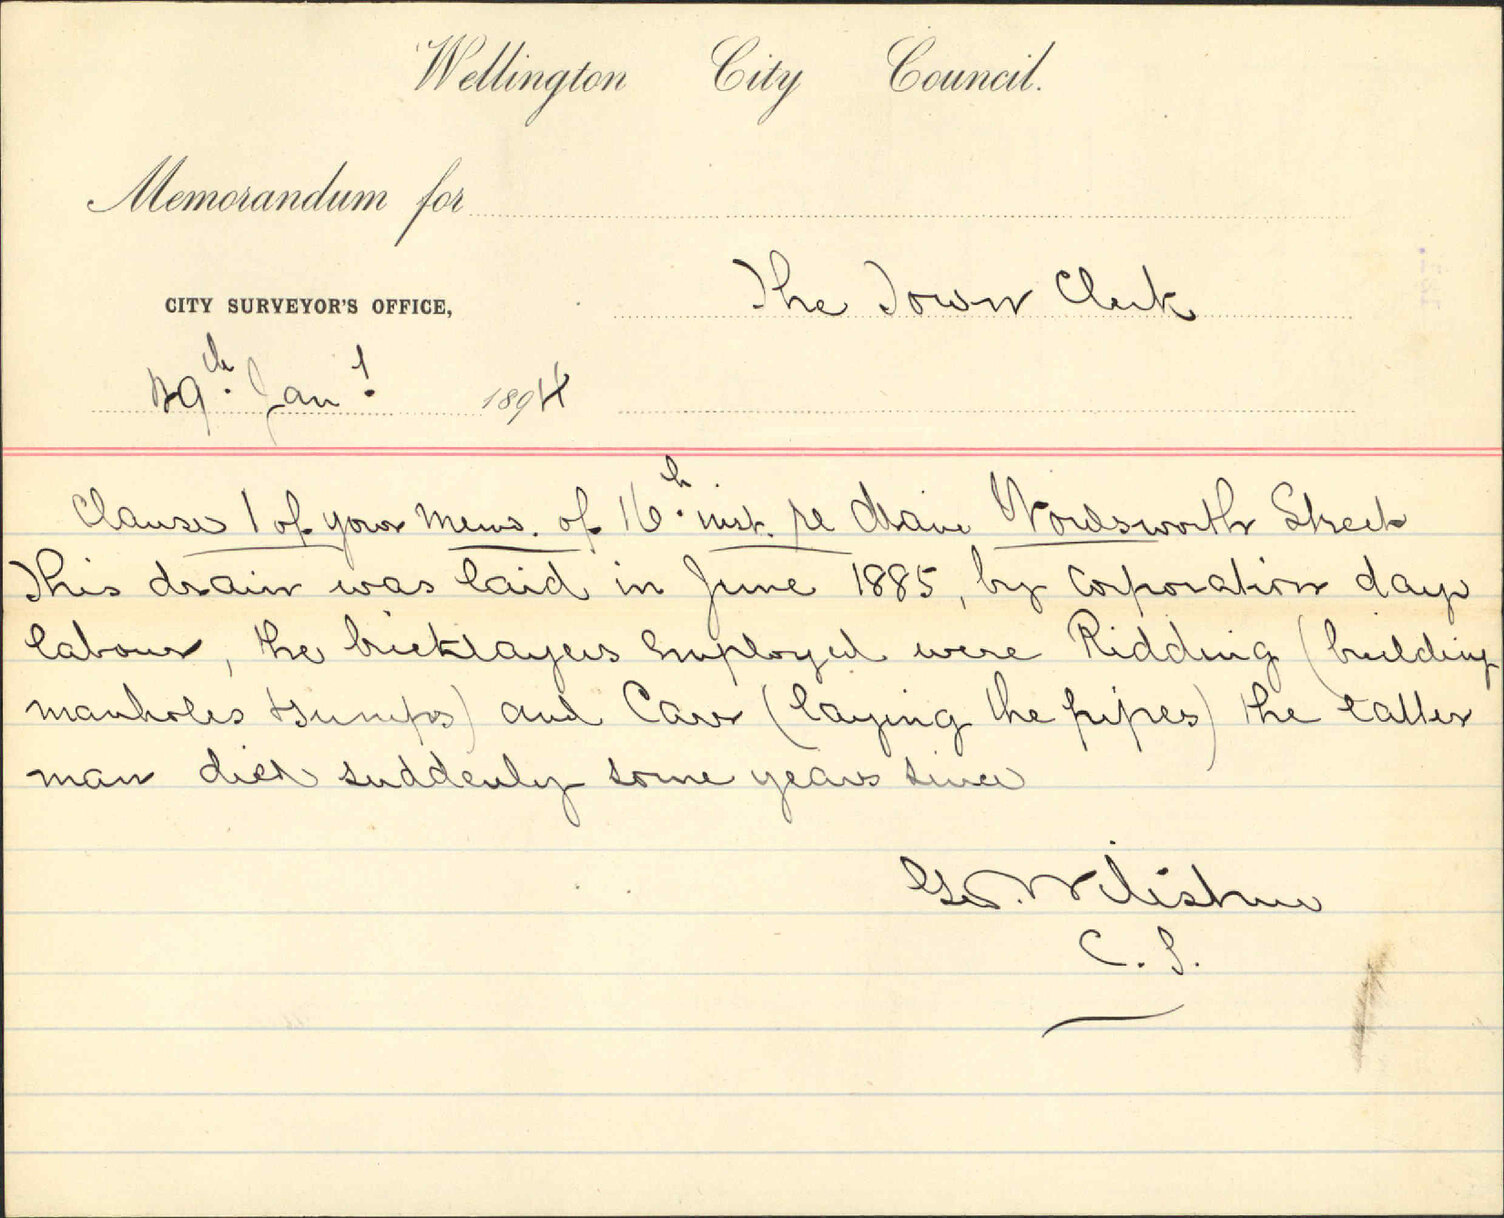 Wellington City Council.
Memorandum for
The Town Clerk
CITY SURVEYOR'S OFFICE,
29th Jany 1894
Clause 1 of your Memo. of 16th inst. re drain Wordsworth Street
This drain was laid in June 1885, by Corporation day
labour, the bricklayers employed were Ridding (building
manholes & sumps) and Carr (laying the pipes) the latter
man died suddenly some years since
C. S.